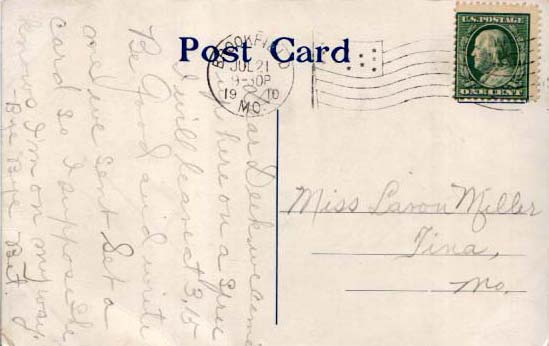 Post Card
BROOKFIELD
JUL 21
9-30P
1910
MO.
U.S. POSTAGE
ONE CENT
Dear Deck we came
up here on a
I will leave at 3,15
Be Good and write
one we sent Set a
card so I suppose he
knows I'm on my way.
Bye Bye
Miss Lavon Miller
Tina,
Mo.